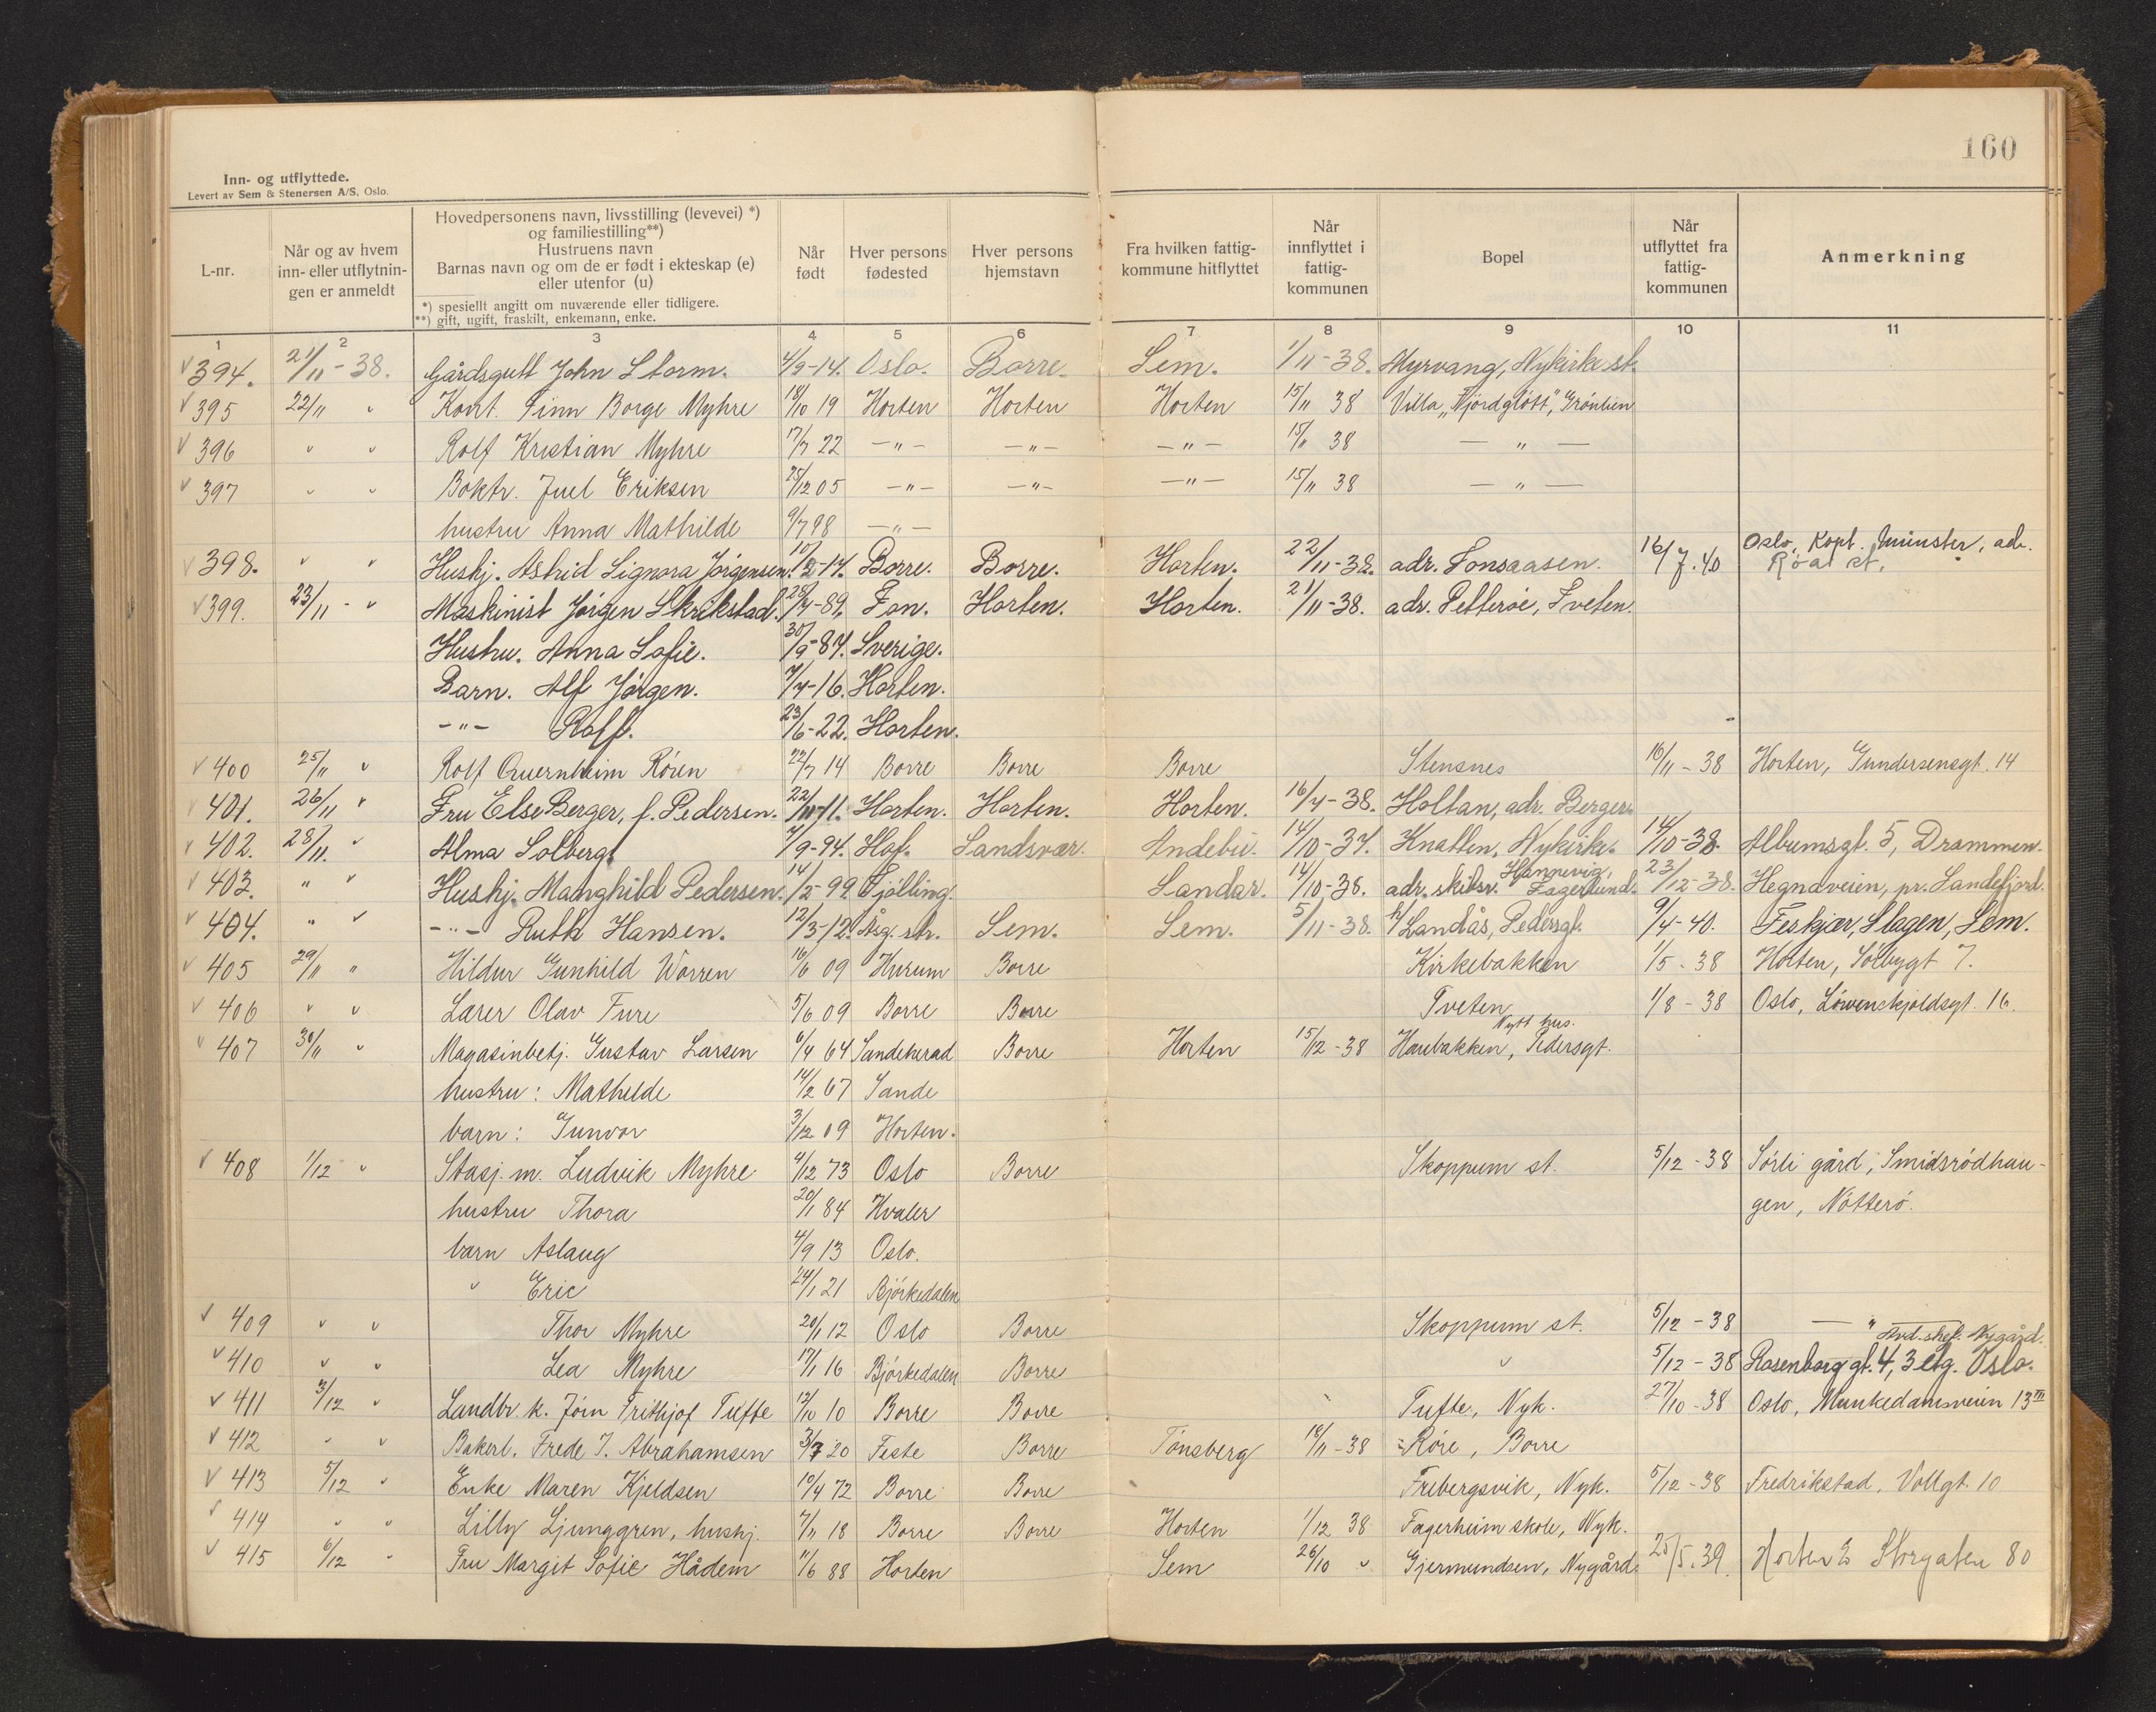 160
Inn- og utflyttede.
Levert av Sem & Stenersen A/S. Oslo.
L-nr.
Når og av hvem inn- eller utflytnin-gen er anmeldt
Hovedpersonens navn, livsstilling (levevei) *) og familiestilling**) Hustruens navn Barnas navn og om de er født i ekteskap (e) eller utenfor (u)
*) spesiellt angitt om nuværende eller tidligere.
**) gift, ugift, fraskilt, enkemann, enke.
Når født
Hver persons fødested
Hver persons hjemstavn
Fra hvilken fattig-kommune hitflyttet
Når innflyttet i fattig-kommunen
Bopel
Når utflyttet fra fattig-kommunen
Anmerkning
1 2 3 4 5 6 7 8 9 10 11
√ 394. 21/11-38. Gårdsgutt John Storm. 4/9-14. Oslo. Borre. Sem. 1/11-38. Myrvang, Nykirke st.
√ 395 22/11 " Kont. Finn Borge Myhre 18/10 19 Horten Horten Horten 15/11 38 Villa "Fjordgløtt", Grönlien
√ 396 " " Rolf Kristian Myhre 17/7 22 —"— —"— —"— 15/11 38 — " —
√ 397 " " Boktr. Juel Eriksen 25/12 05 —"— —"— —"— 15/11 38 — " —
hustru Anna Mathilde 9/7 98 —"—
√ 398. " " Hushj. Astrid Signora Jörgensen. 10/2-14. Borre. Borre. Horten. 22/11-38. adr. Fonsaasen. 16/7.40 Oslo, Kapt. Münster, adr.
Röa st.
√ 399. 23/11 - " Maskinist Jörgen Skrikstad. 28/7-89. Fon. Horten. Horten. 21/11-38. adr. Petteröe, Tveten.
Hustru. Anna Sofie. 30/9-87. Sverige.
Barn. Alf Jörgen. 7/7-16. Horten.
-"- Rolf. 23/6-22. Horten.
√ 400 25/11 " Rolf Qvernheim Rören 22/7 14 Borre Borre Borre Stensnes 16/11-38 Horten, Gundersensgt. 14
√ 401. 26/11 " Fru Else Berger, f. Pedersen. 22/11-11. Horten. Horten. Horten. 16/7-38. Holtan, adr. Berger.
√ 402. 28/11. " Alma Solberg. 7/9-94. Hof. Sandsvær. Andebu. 14/10-37. Knatten, Nykirke. 14/10-38. Albumsgt. 5, Drammen.
√ 403. " " Hushj. Manghild Pedersen. 14/2-99. Tjölling. Sandar. 14/10-38. adr. skibsr. Hannevig, Fagerlund. 23/12-38. Hegnaveien, pr. Sandefjord.
√ 404. " " -"- Ruth Hansen. 12/3-12. Åsg. str. Sem. Sem. 5/11-38. h/Landås, Pedersgt. 9/4-40. Feskjær, Slagen, Sem.
√ 405 29/11 " Hildur Gunhild Worren 16/6 09 Hurum Borre Kirkebakken 1/5-38 Horten, Solbygt 7.
√ 406 " " Lærer Olav Fure 5/6 09 Borre Borre Tveten 1/8-38 Oslo, Lövenskjoldsgt. 16.
√ 407 30/11 " Magasinbetj. Gustav Larsen 6/4 64 Sandeherad Borre Horten 15/12-38 Haubakken, Nytt hus. Pedersgt.
hustru: Mathilde 14/2 67 Sande
barn: Gunvor 3/12 09 Horten.
√ 408 1/12 " Stasj.m. Ludvik Myhre 4/12 73 Oslo Borre Skoppum st. 5/12-38 Sörli gård, Smidsrödhau-
hustru Thora 20/1 84 Hvaler gen, Nötterö.
barn Aslaug 4/9 13 Oslo.
" Eric 24/1 21 Björkedalen
√ 409 " " Thor Myhre 20/1 12 Oslo Borre Skoppum st. 5/12-38 — " —
Avd. shef. Nygård.
√ 410 " " Lea Myhre 17/1 16 Björkedalen Borre " 5/12-38 Rosenborg gt. 4, 3 etg. Oslo.
√ 411 3/12 " Landbr.k. Jörn Frithjof Tufte 12/10 10 Borre Borre Tufte, Nyk. 27/10-38 Oslo, Munkedamsveien 13 III
√ 412 " " Bakerl. Frede J. Abrahamsen 3/7 20 Feste Borre Tönsberg 18/11-38 Röre, Borre
√ 413 5/12 " Enke Maren Kjeldsen 10/4 72 Borre Borre Fribergsvik, Nyk. 5/12-38 Fredrikstad, Vollgt. 10
√ 414 " " Lilly Ljunggren, hushj. 7/11 18 Borre Borre Horten 1/12 38 Fagerheim skole, Nyk.
√ 415 6/12 " Fru Margit Sofie Hådem 11/6 88 Horten Sem 26/10 " Gjermundsen, Nygård. 25/5.39. Horten Storgaten 80